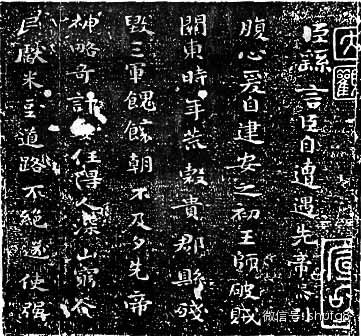 臣繇言臣自遭遇先帝
腹心爰自建安之初王師破賊
關東時年荒穀貴郡縣殘
毀三軍餽餉朝不及夕先帝
神略奇計任得人深山窮谷
民獻米豆道路不絕遂使强
微信号